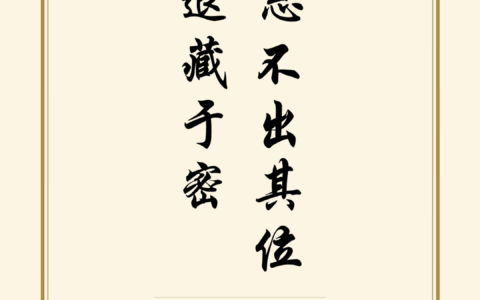 思不出其位
退藏于密